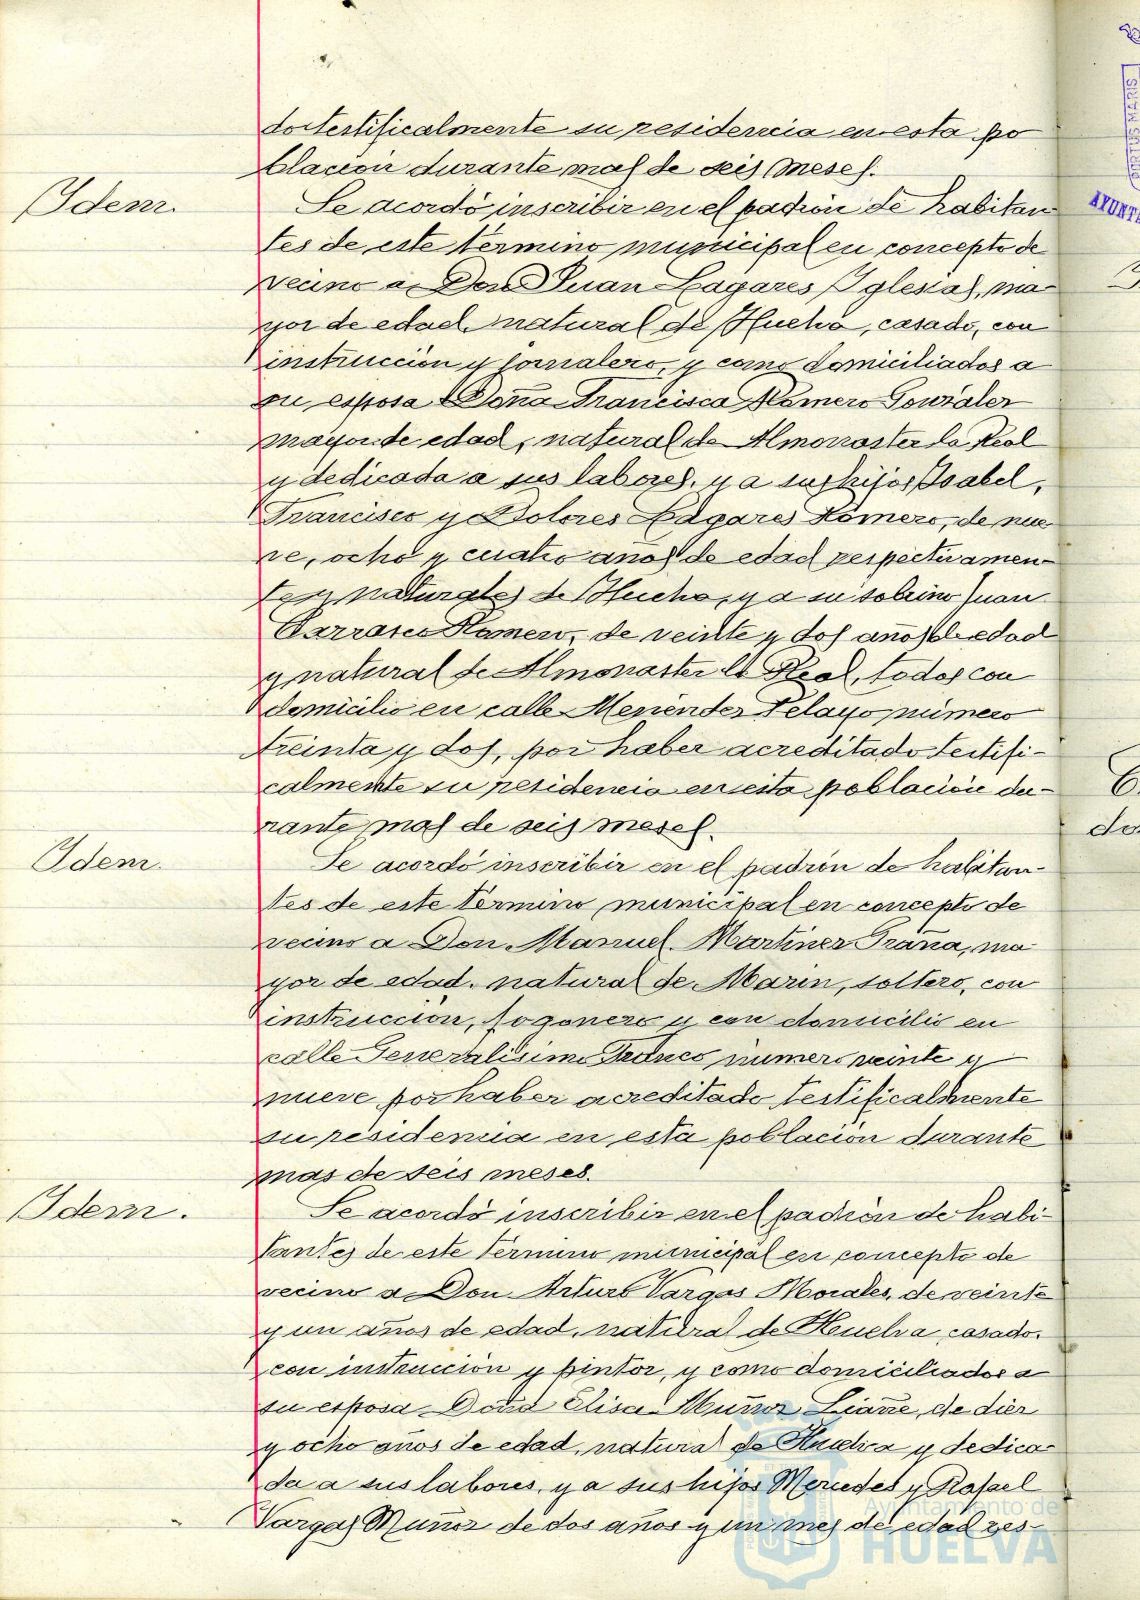 do testificalmente su residencia en esta po
blación durante mas de seis meses.
Idem.
Se acordó inscribir en el padrón de habitan
tes de este término municipal en concepto de
vecino a Don Juan Lagares Iglesias, ma
yor de edad, natural de Huelva, casado, con
instrucción y jornalero, y como domiciliados a
su esposa Doña Francisca Romero González
mayor de edad, natural de Almonaster la Real
y dedicada a sus labores, y a sus hijos Isabel,
Francisco y Dolores Lagares Romero, de nue
ve, ocho y cuatro años de edad respectivamen-
te y naturales de Huelva, y a su sobrino Juan
Carrasco Romero, de veinte y dos años de edad
y natural de Almonaster la Real, todos con
domicilio en calle Menendez Pelayo número
treinta y dos, por haber acreditado testifi-
calmente su residencia en esta población du-
rante mas de seis meses.
Idem.
Se acordó inscribir en el padrón de habitan-
tes de este término municipal en concepto de
vecino a Don Manuel Martinez Graña, ma
yor de edad, natural de Marin, soltero, con
instrucción, fogonero y con domicilio en
calle Generalísimo Franco número veinte y
nueve por haber acreditado testificalmente
su residencia en esta población durante
mas de seis meses.
Idem.
Se acordó inscribir en el padrón de habi-
tantes de este término municipal en concepto de
vecino a Don Arturo Vargas Morales, de veinte
y un años de edad, natural de Huelva, casado,
con instrucción y pintor, y como domiciliados a
su esposa Doña Elisa Muñoz de diez
y ocho años de edad, natural de Huelva y dedica-
da a sus labores, y a sus hijos Mercedes y Rafael
Vargas Muñoz de dos años y un mes de edad res-
Ayuntamiento de
HUELVA